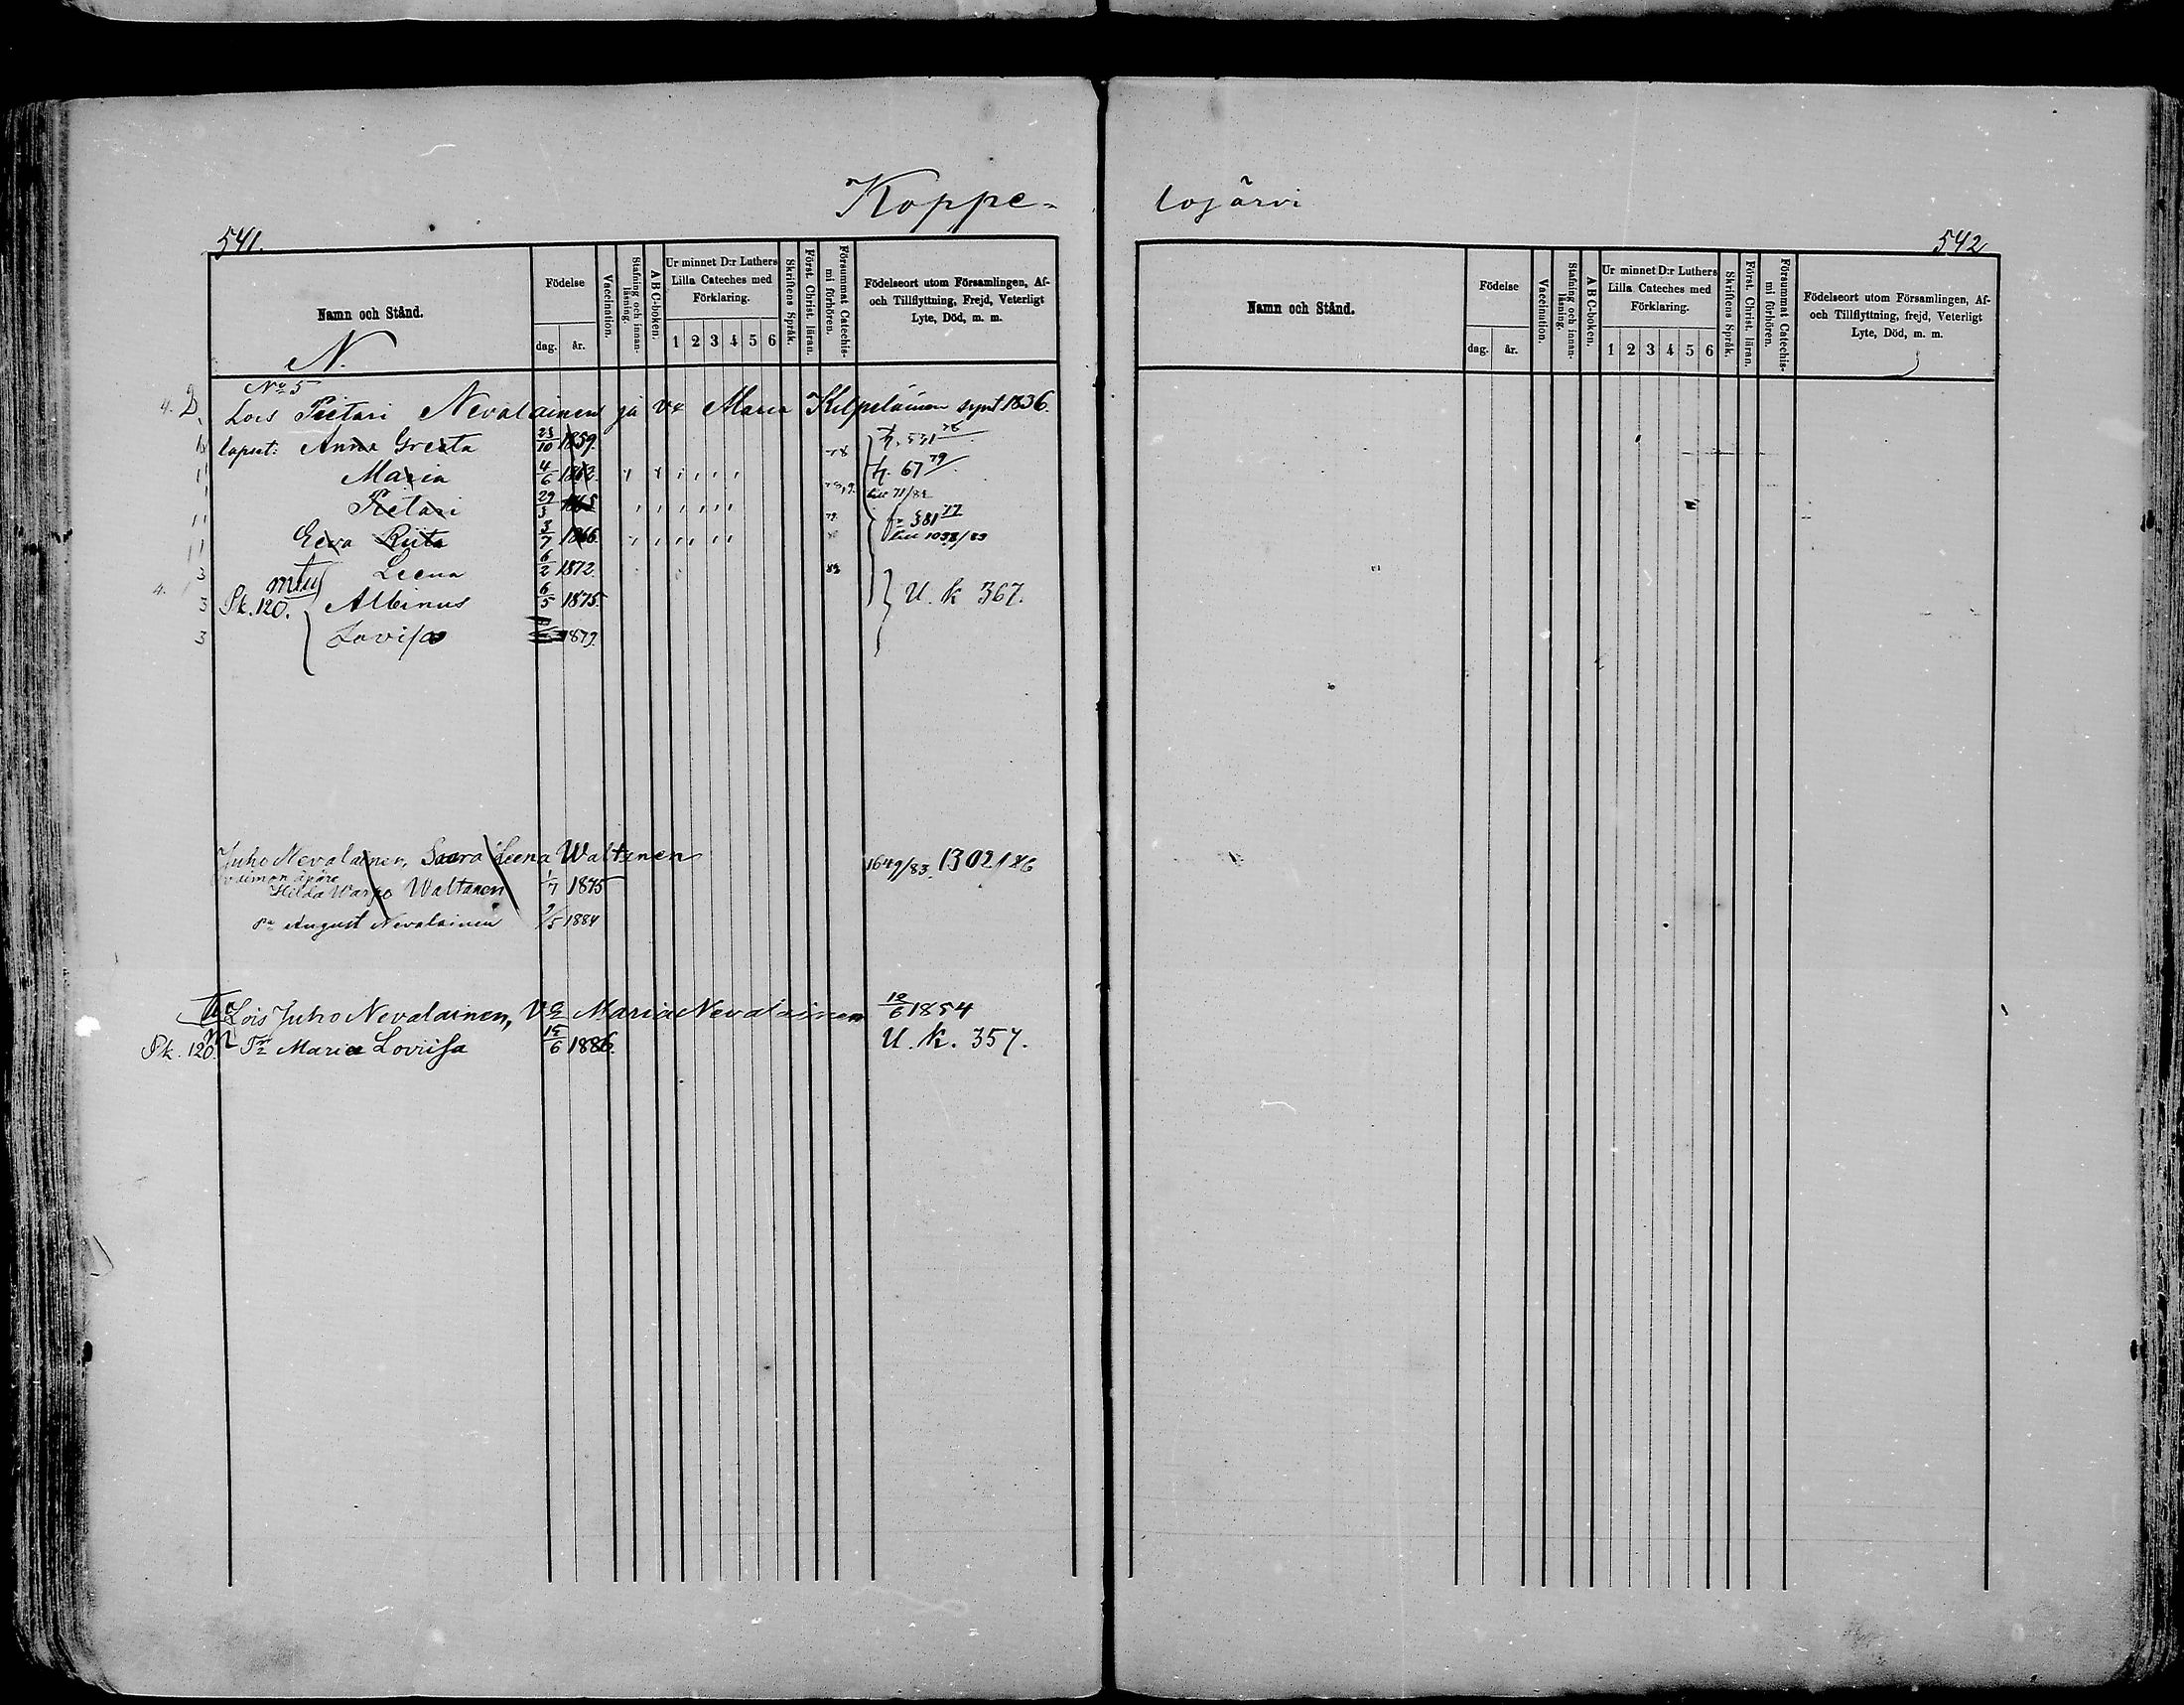 Koppe-
lojärvi
541.
Namn och Stånd.
N.
Födelse
dag.
år.
Vaccination.
Stafning och innanläsning.
A B C-boken.
Ur minnet D:r Luthers
Lilla Cateches med
Förklaring.
1 2 3 4 5 6
Skriftens Språk.
Först. Christ. läran.
Försummat Catechismi förhören.
Födelseort utom Församlingen, Af-
och Tillflyttning, Frejd, Veterligt
Lyte, Död, m. m.
No 5
Lois Pietari Nevalainen ja Vo Maria Kilpeläinen synt 1836.
lapset: Anna Greeta 23/10 1859. 78 531 78
Maria 4/6 1862. 67 79
Pietari 29/3 1865 71/82
Eeva Riita 3/7 1866. 79 381 77 1038/83
3 Leena 6/2 1872. 83
3 Pk. 120. Albinus 6/5 1875. U. k 367.
3 Lovisa 1879.
Juho Nevalainen, Saara Leena Waltanen 1649/83. 1302/86
vaimon äpäre
Hilda Warpo Waltanen 1/7 1875
Pa August Nevalainen /5 1884
Lois Juho Nevalainen, Vo Maria Nevalainen 10/6 1854
Pk. 120. Tr Maria Loviisa 15/6 1886. U. k. 357.
542
Namn och Stånd.
Födelse
dag.
år.
Vaccination.
Stafning och innanläsning.
A B C-boken.
Ur minnet D:r Luthers
Lilla Cateches med
Förklaring.
1 2 3 4 5 6
Skriftens Språk.
Först. Christ. läran.
Försummat Catechismi förhören.
Födelseort utom Församlingen, Af-
och Tillflyttning, frejd, Veterligt
Lyte, Död, m. m.